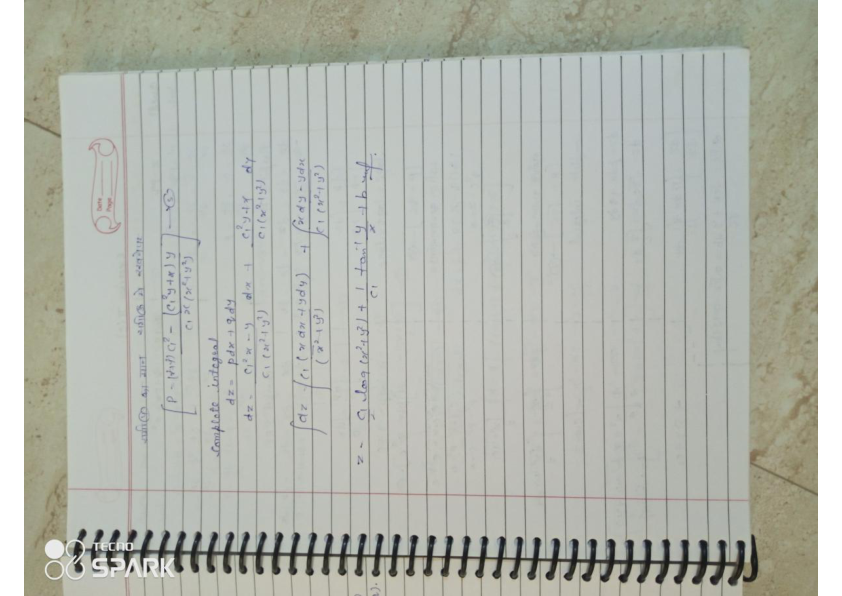 Date
Page
का मान समी० में रखने पर
[ P = (1+1) c₁² - (c₁²y+x) y / c₁x (x²+y²) ] —
Complete integral
dz = pdx + qdy
dz = c₁²x - y / c₁ (x²+y²) dx + c₁²y+x / c₁ (x²+y²) dy
∫dz = ∫ c₁ (x dx + y dy) / (x²+y²) + ∫ x dy - y dx / c₁ (x²+y²)
z = c₁/2 log (x²+y²) + 1/c₁ tan⁻¹ y/x + b
TECNO
SPARK